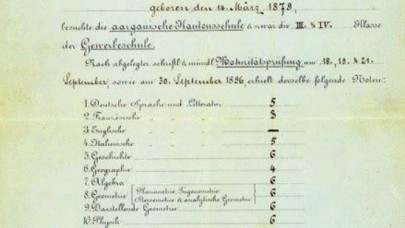 geboren den 14. März, 1879,
besuchte die aargauische Kantonsschule & zwar die III. & IV. Klasse
der Gewerbeschule.
Nach abgelegter schriftl. & mündl. Maturitätsprüfung am 18., 19. & 21.
September, sowie am 30. September 1896, erhielt derselbe folgende Noten:
1. Deutsche Sprache und Litteratur 5
2. Französische " " " 3
3. Englische " " " —
4. Italienische " " " 5
5. Geschichte 6
6. Geographie 4
7. Algebra 6
8. Geometrie { Planimetrie, Trigonometrie Stereometrie & analytische Geometrie } 6
9. Darstellende Geometrie 6
10. Physik 6